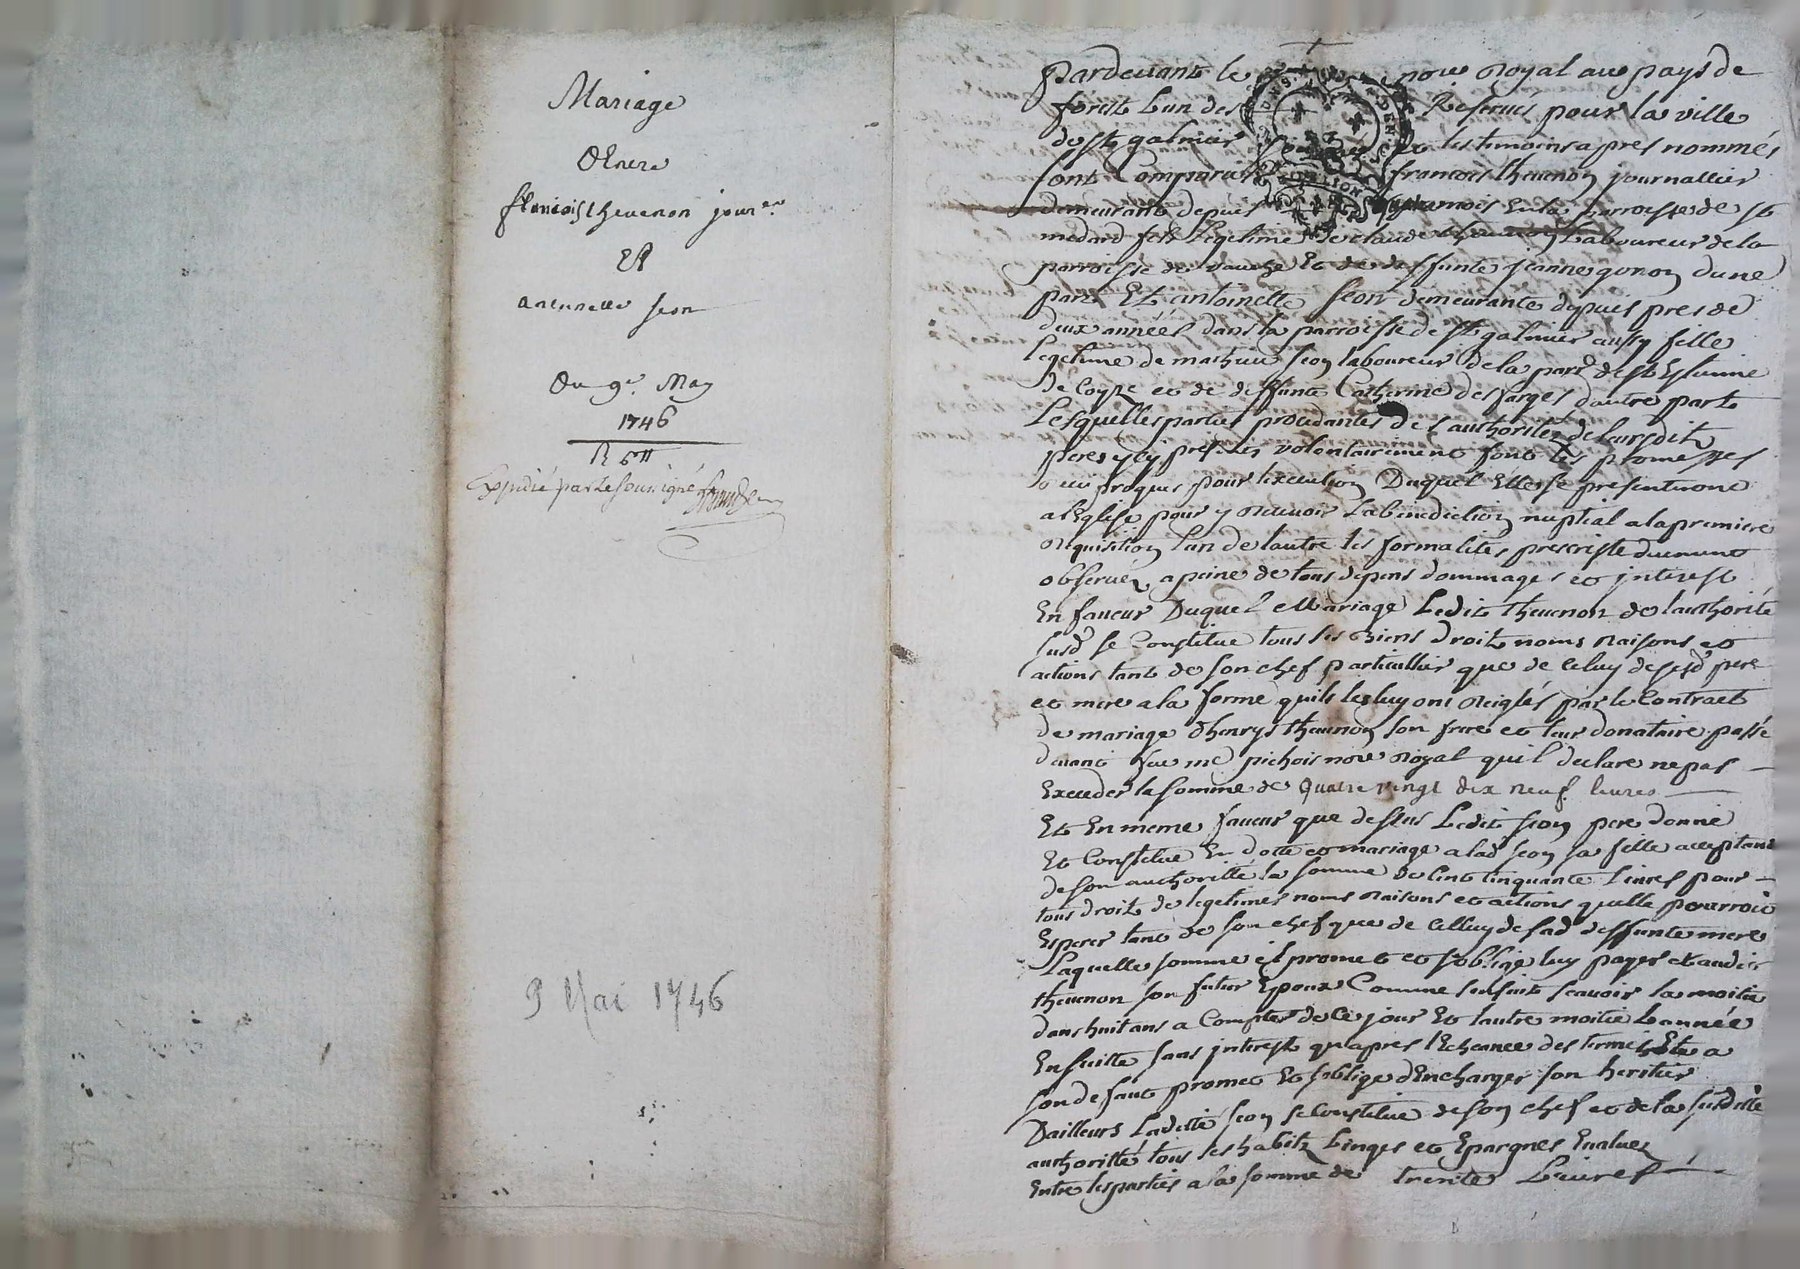 Mariage
Entre
francois thevenon jour.er
Et
antoinette seon
Du 9e. May
1746
R 6 tt
Expedié par Le soussigné
9 Mai 1746
Pardevant le nore Royal au pays de
forest Lun des Reservés pour la ville
de st galmier soussigné et les temoins apres nommés
sont Comparus francois thevenon journallier
demeurant depuis mois en la parroisse de st
medard fils Legetime de claude thevenon Laboureur de la
parroisse de vauche Et de deffunte jeanne gonon dune
part Et antoinette seon demeurante depuis pres de
deux années dans la parroisse de st galmier aussy fille
legetime de mathieu seon laboureur de la parr de st Estienne
de Coyze et de deffunte Catherine desfarges dautre part
Lesquelles parties procedantes de l'authorité de leursdits
peres icy presents volontairement font les promesses
reciproques pour lexecution Duquel Elles se presenteront
a lEglise pour y Recevoir La benediction nuptial a la premiere
Requisition lun de lautre les formalités prescriste duement
observéz a peine de tous depens dommages et interest
En faveur Duquel Mariage Ledit thevenon de lauthorité
susd se Constitue tous ses Biens Droits noms Raisons et
actions tant de son chef particullier que de Celuy de sesd pere
et mere a la forme quils les luy ont Reiglés par le Contract
de mariage dhenrys thevenon son frere et leur donataire passé
devant feu me pichois nore Royal qu'il declare ne pas
Exceder la somme de quatre vingt dix neuf livres
Et En meme faveur que dessus Ledit seon pere donne
Et Constitue En dotte et mariage a lad seon sa fille acceptant
de son authoritté la somme de Cent Cinquante Livres pour
tous droits de legetimes noms Raisons et actions quelle pourroit
Esperer tant de son chef que de Celluy de sad deffunte mere
Laquelle somme il promet et soblige luy payer et audit
thevenon son futur Epoux Comme sensuit scavoir la moitié
dans huit ans a Compter de Ce jour Et lautre moitié Lannée
En suitte sans interest quapres l'Echeance des termes Et a
son defaut promet Et soblige dEncharger son heritier
Dailleurs Ladette seon se Constitue de son chef et de la susditte
authoritté tous ses habits Linges et Epargnes Evaluez
Entre les parties a la somme de trente Livres